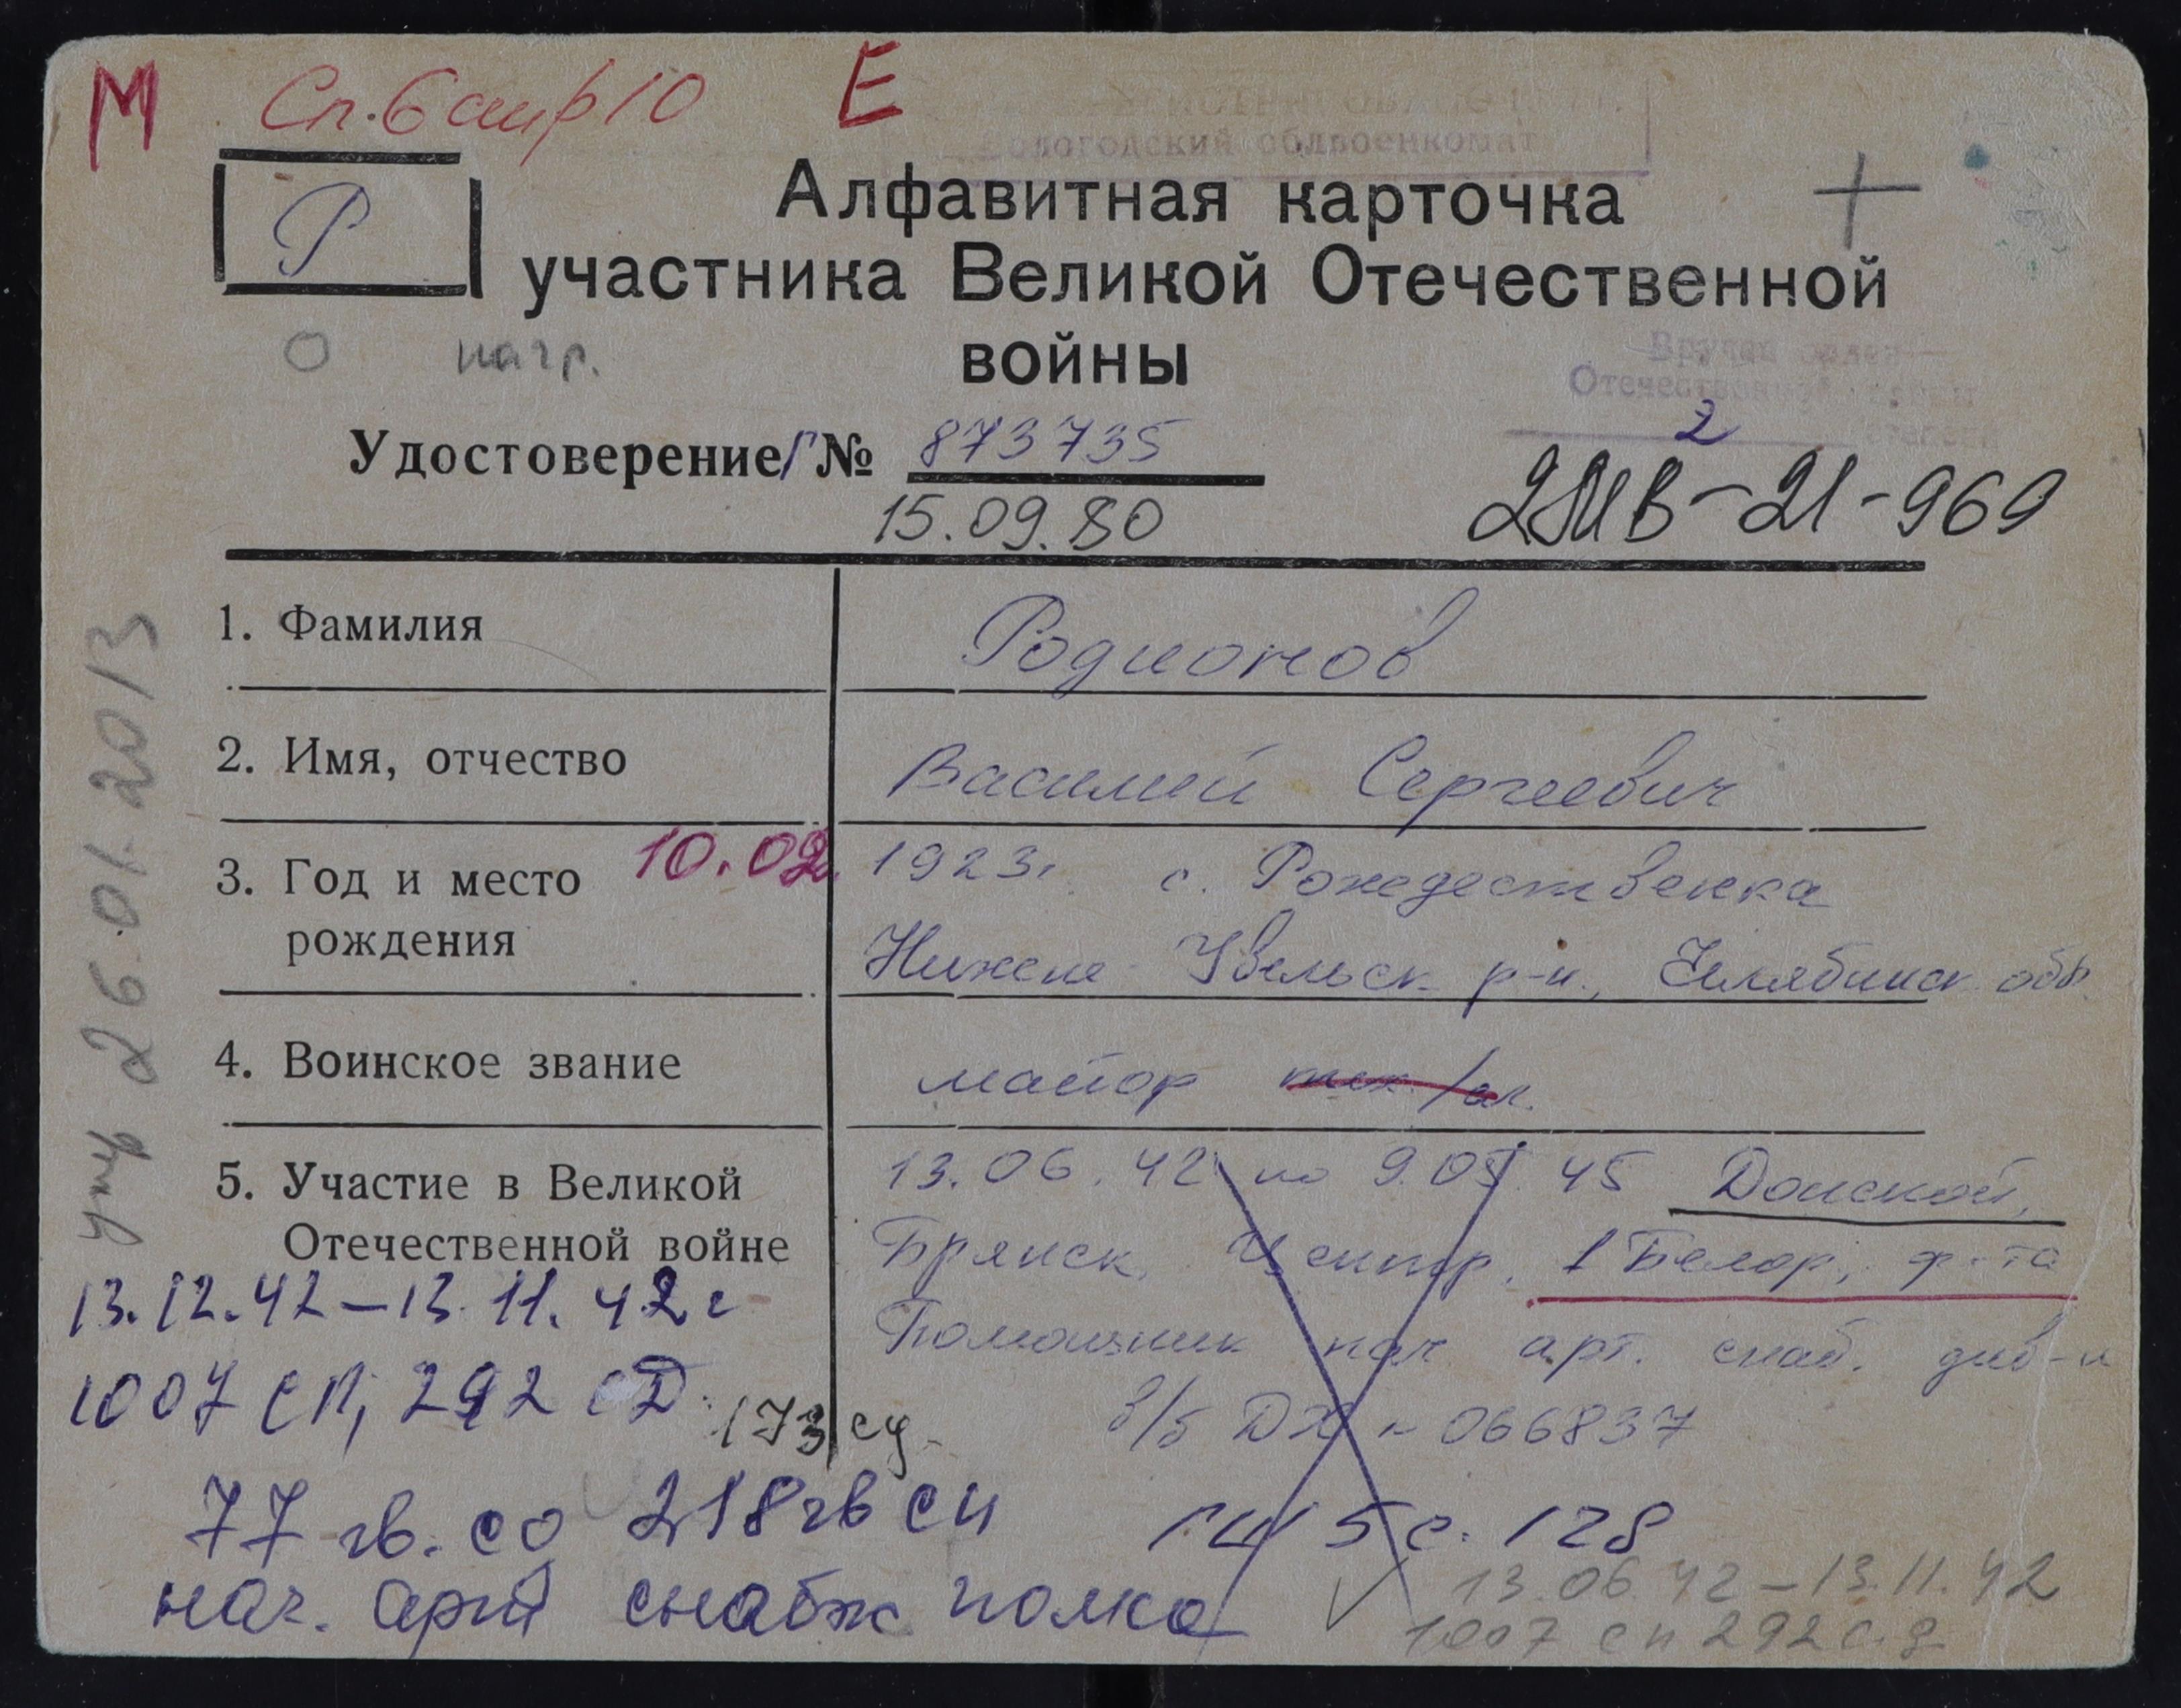 М Сп. 6 шифр 10 Е
Вологодский облвоенкомат
Р
Алфавитная карточка
участника Великой Отечественной
войны
О нагр.
Вручен орден
Отечественной войны
2 степени
Удостоверение/Г № 873735
15.09.80
21-969
1. Фамилия Родионов
2. Имя, отчество Василий Сергеевич
3. Год и место рождения 10.02. 1923г. с. Рождественка
Нижне-Увельск р-н, Челябинск обл
4. Воинское звание майор
5. Участие в Великой Отечественной войне 13.06.42 по 9.05.45 Донской,
Брянск. Центр. 1 Белор, ф-та
Помошник нач арт. снаб. див-и
в/б ДХ № 066837
13.12.42-13.11.42г
1007 СП, 292 СД. 173 сд
77 гв. сд 218 гв сп
нач. арт снабж полка
5 с. 128
13.06.42-13.11.42
1007 сп 292 с.д
умер 26.01.2013